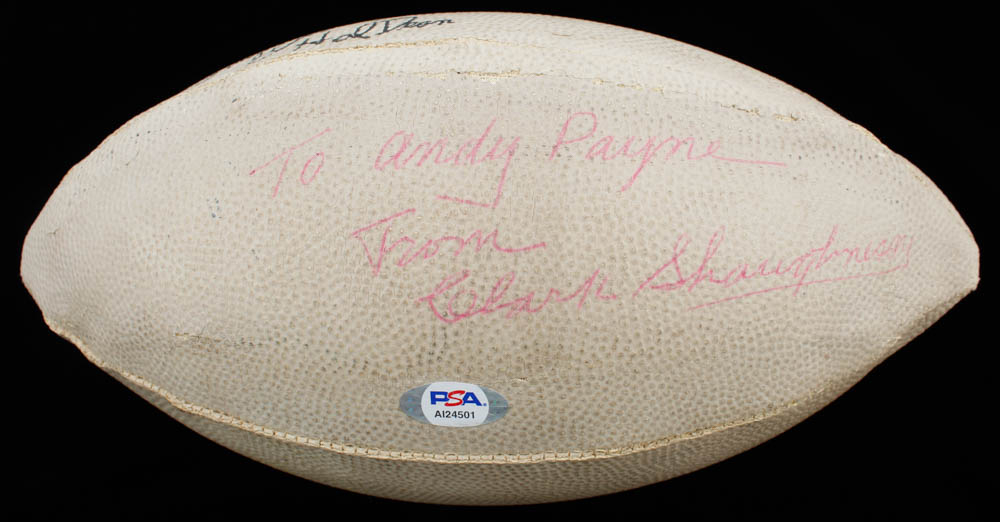 Hal Dean
To Andy Payne
From
Clark Shaughnessy
PSA
AI24501